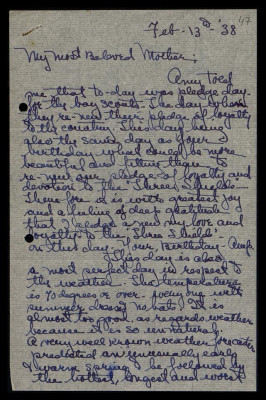 47
Feb. 13th - '38
My Most Beloved Mother;
Amy told
me that to-day was pledge day
for the boy scouts - The day when
they re-new their pledge of loyalty
to the country. This day being
also the same day as your
birthday what could be more
beautiful and fitting than to
re-new our pledge of loyalty and
devotion to the "Three Shields".
Therefore it is with greatest joy
and a feeling of deep gratitude
that I pledge a new my love and
loyalty to the "Three Shields"
on this day - your Birthday -
This day is also
a most perfect day in respect to
the weather. The temperature
is 70 degrees or over. Going out with
summer dress no hat. It is
almost too good as regards weather
because it is so unnatural.
A very well known weather forecaster
predicted an unusually early
& warm spring to be followed by
the hottest, longest and worst